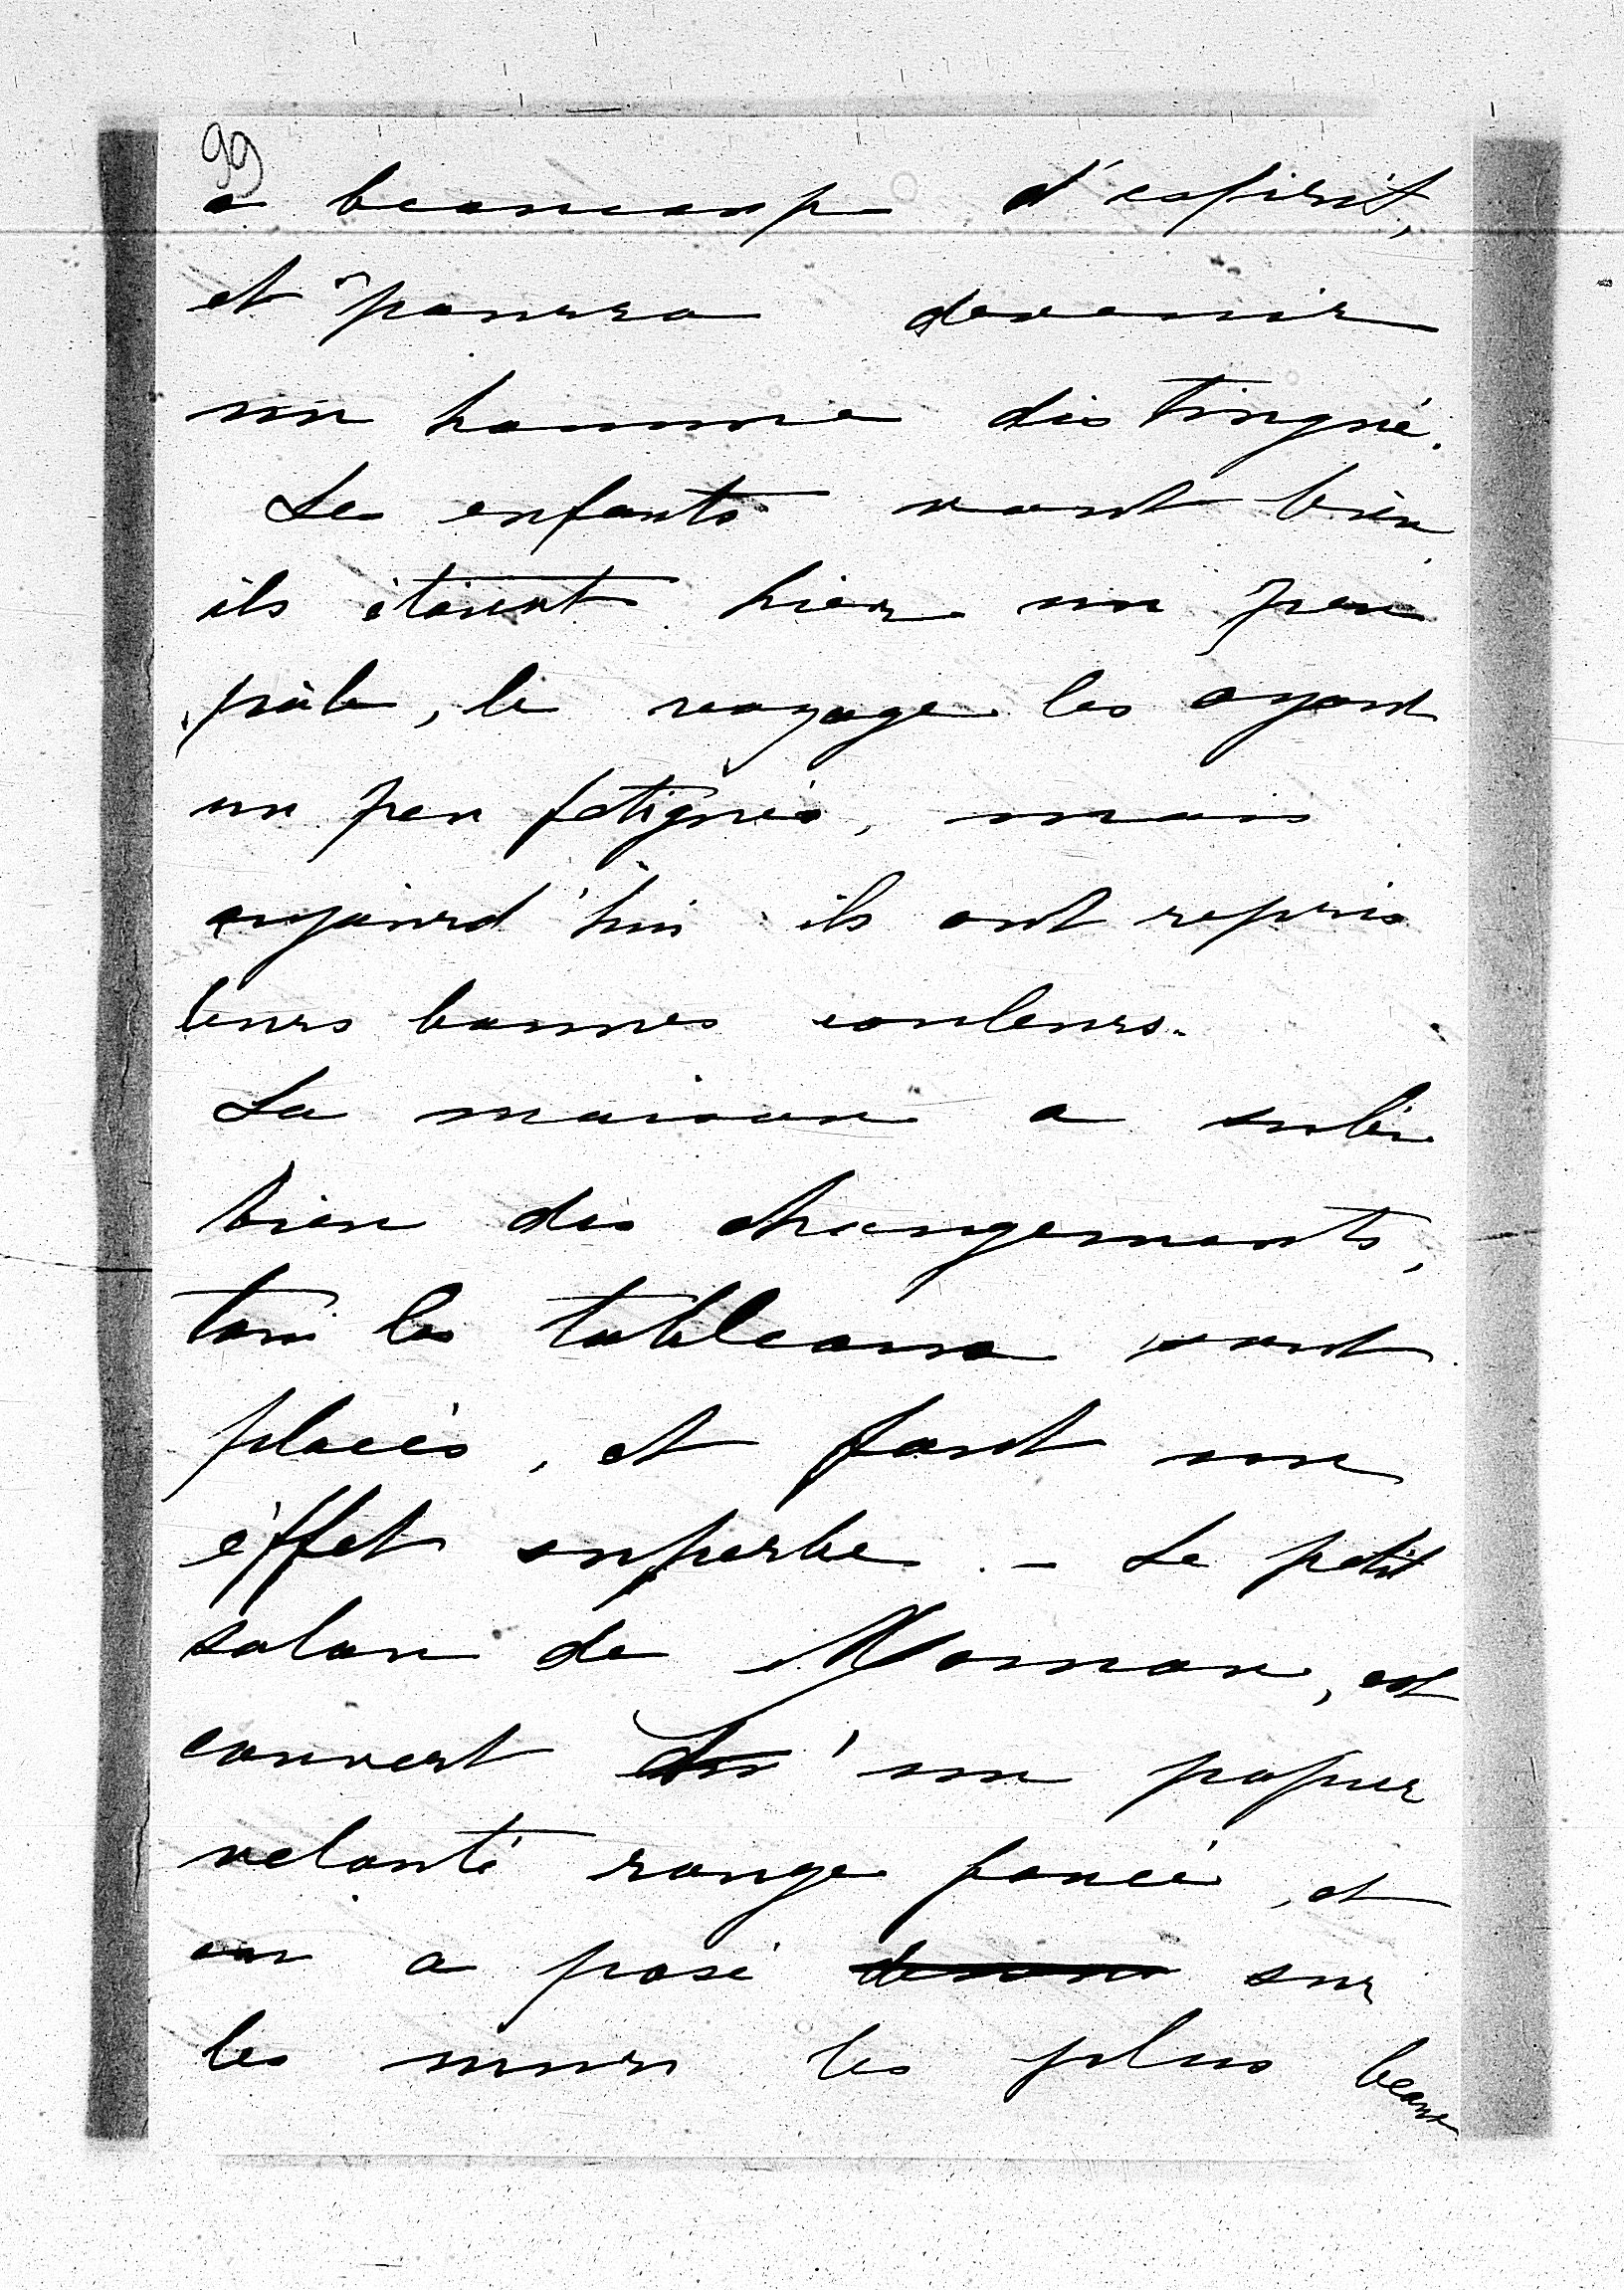 99
a beaucoup d'esprit,
et pourra devenir
un homme distingué.
Les enfants vont bien,
ils étaient hier un peu
pâle, le voyage les ayant
un peu fatigués, mais
aujourd'hui ils ont repris
leurs bonnes couleurs.
La maison a subi
bien des changements,
tous les tableaux sont
placés, et font un
éffet superbe. - Le petit
salon de Maman, est
couvert d'un papier
velouté rouge foncé, et
on a posé dessus sur
les murs les plus beaux